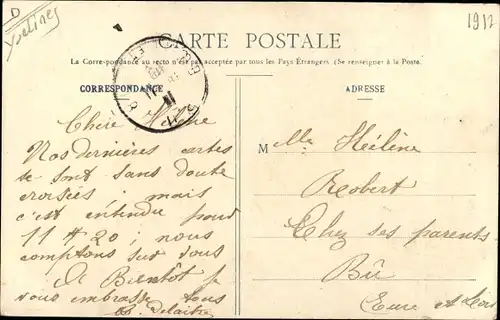 D
Yvelines
1912
CARTE POSTALE
La Correspondance au recto n'est pas acceptée par tous les Pays Étrangers. (Se renseigner à la Poste.
CORRESPONDANCE
ADRESSE
Chère Hélène
Nos dernières cartes
se sont sans doute
croisées ; mais
c'est entendu pour
11 # 20 ; nous
comptons sur vous
A Bientôt je
vous embrasse tous
Delaitre
M lle Hélène
Robert
Chez ses parents
Bû
Eure et Loir